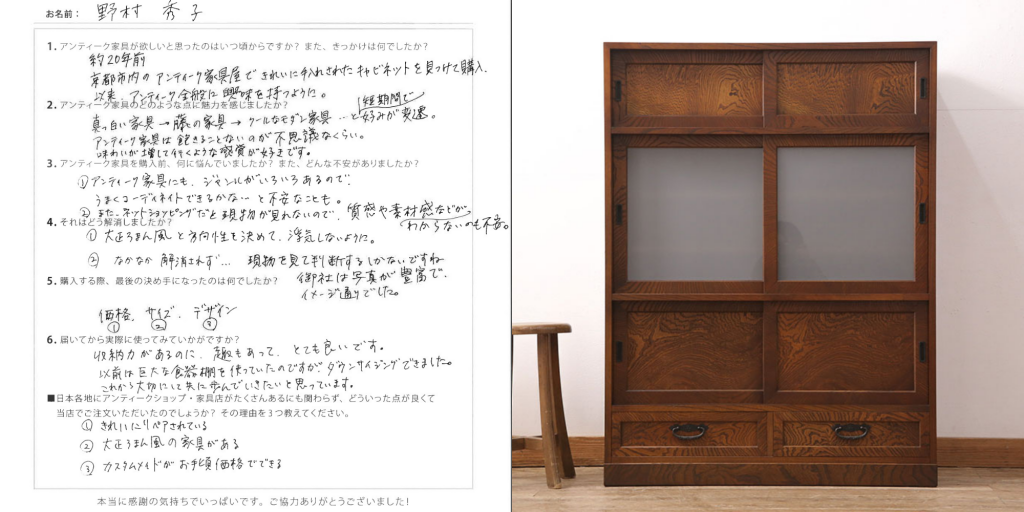 お名前： 野村 秀子
1. アンティーク家具が欲しいと思ったのはいつ頃からですか？ また、きっかけは何でしたか？
約20年前
京都市内のアンティーク家具屋できれいに手入れされたキャビネットを見つけて購入、
以来、アンティーク全般に興味を持つように。
2. アンティーク家具のどのような点に魅力を感じましたか？
真っ白い家具→藤の家具→クールなモダン家具…と短期間で好みが変遷。
アンティーク家具は飽きることないのが不思議なくらい。
味わいが増して行くような感覚が好きです。
3. アンティーク家具を購入前、何に悩んでいましたか？ また、どんな不安がありましたか？
①アンティーク家具にも、ジャンルがいろいろあるので、
うまくコーディネイトできるかな…と不安なことも。
②また、ネットショッピングだと現物が見れないので、質感や素材感などが
わからないのも不安。
4. それはどう解消しましたか？
① 大正ろまん風と方向性を決めて、浮気しないように。
② なかなか解消されず… 現物を見て判断するしかないですね
御社は写真が豊富で、
イメージ通りでした。
5. 購入する際、最後の決め手になったのは何でしたか？
価格、サイズ、デザイン
① ② ③
6. 届いてから実際に使ってみていかがですか？
収納力があるのに、趣もあって、とても良いです。
以前は巨大な食器棚を使っていたのですが、ダウンサイジングできました。
これから大切にして共に歩んでいきたいと思っています。
■日本各地にアンティークショップ・家具店がたくさんあるにも関わらず、どういった点が良くて
当店でご注文いただいたのでしょうか？ その理由を3つ教えてください。
① きれいにリペアされている
② 大正ろまん風の家具がある
③ カスタムメイドがお手頃価格でできる
本当に感謝の気持ちでいっぱいです。ご協力ありがとうございました！